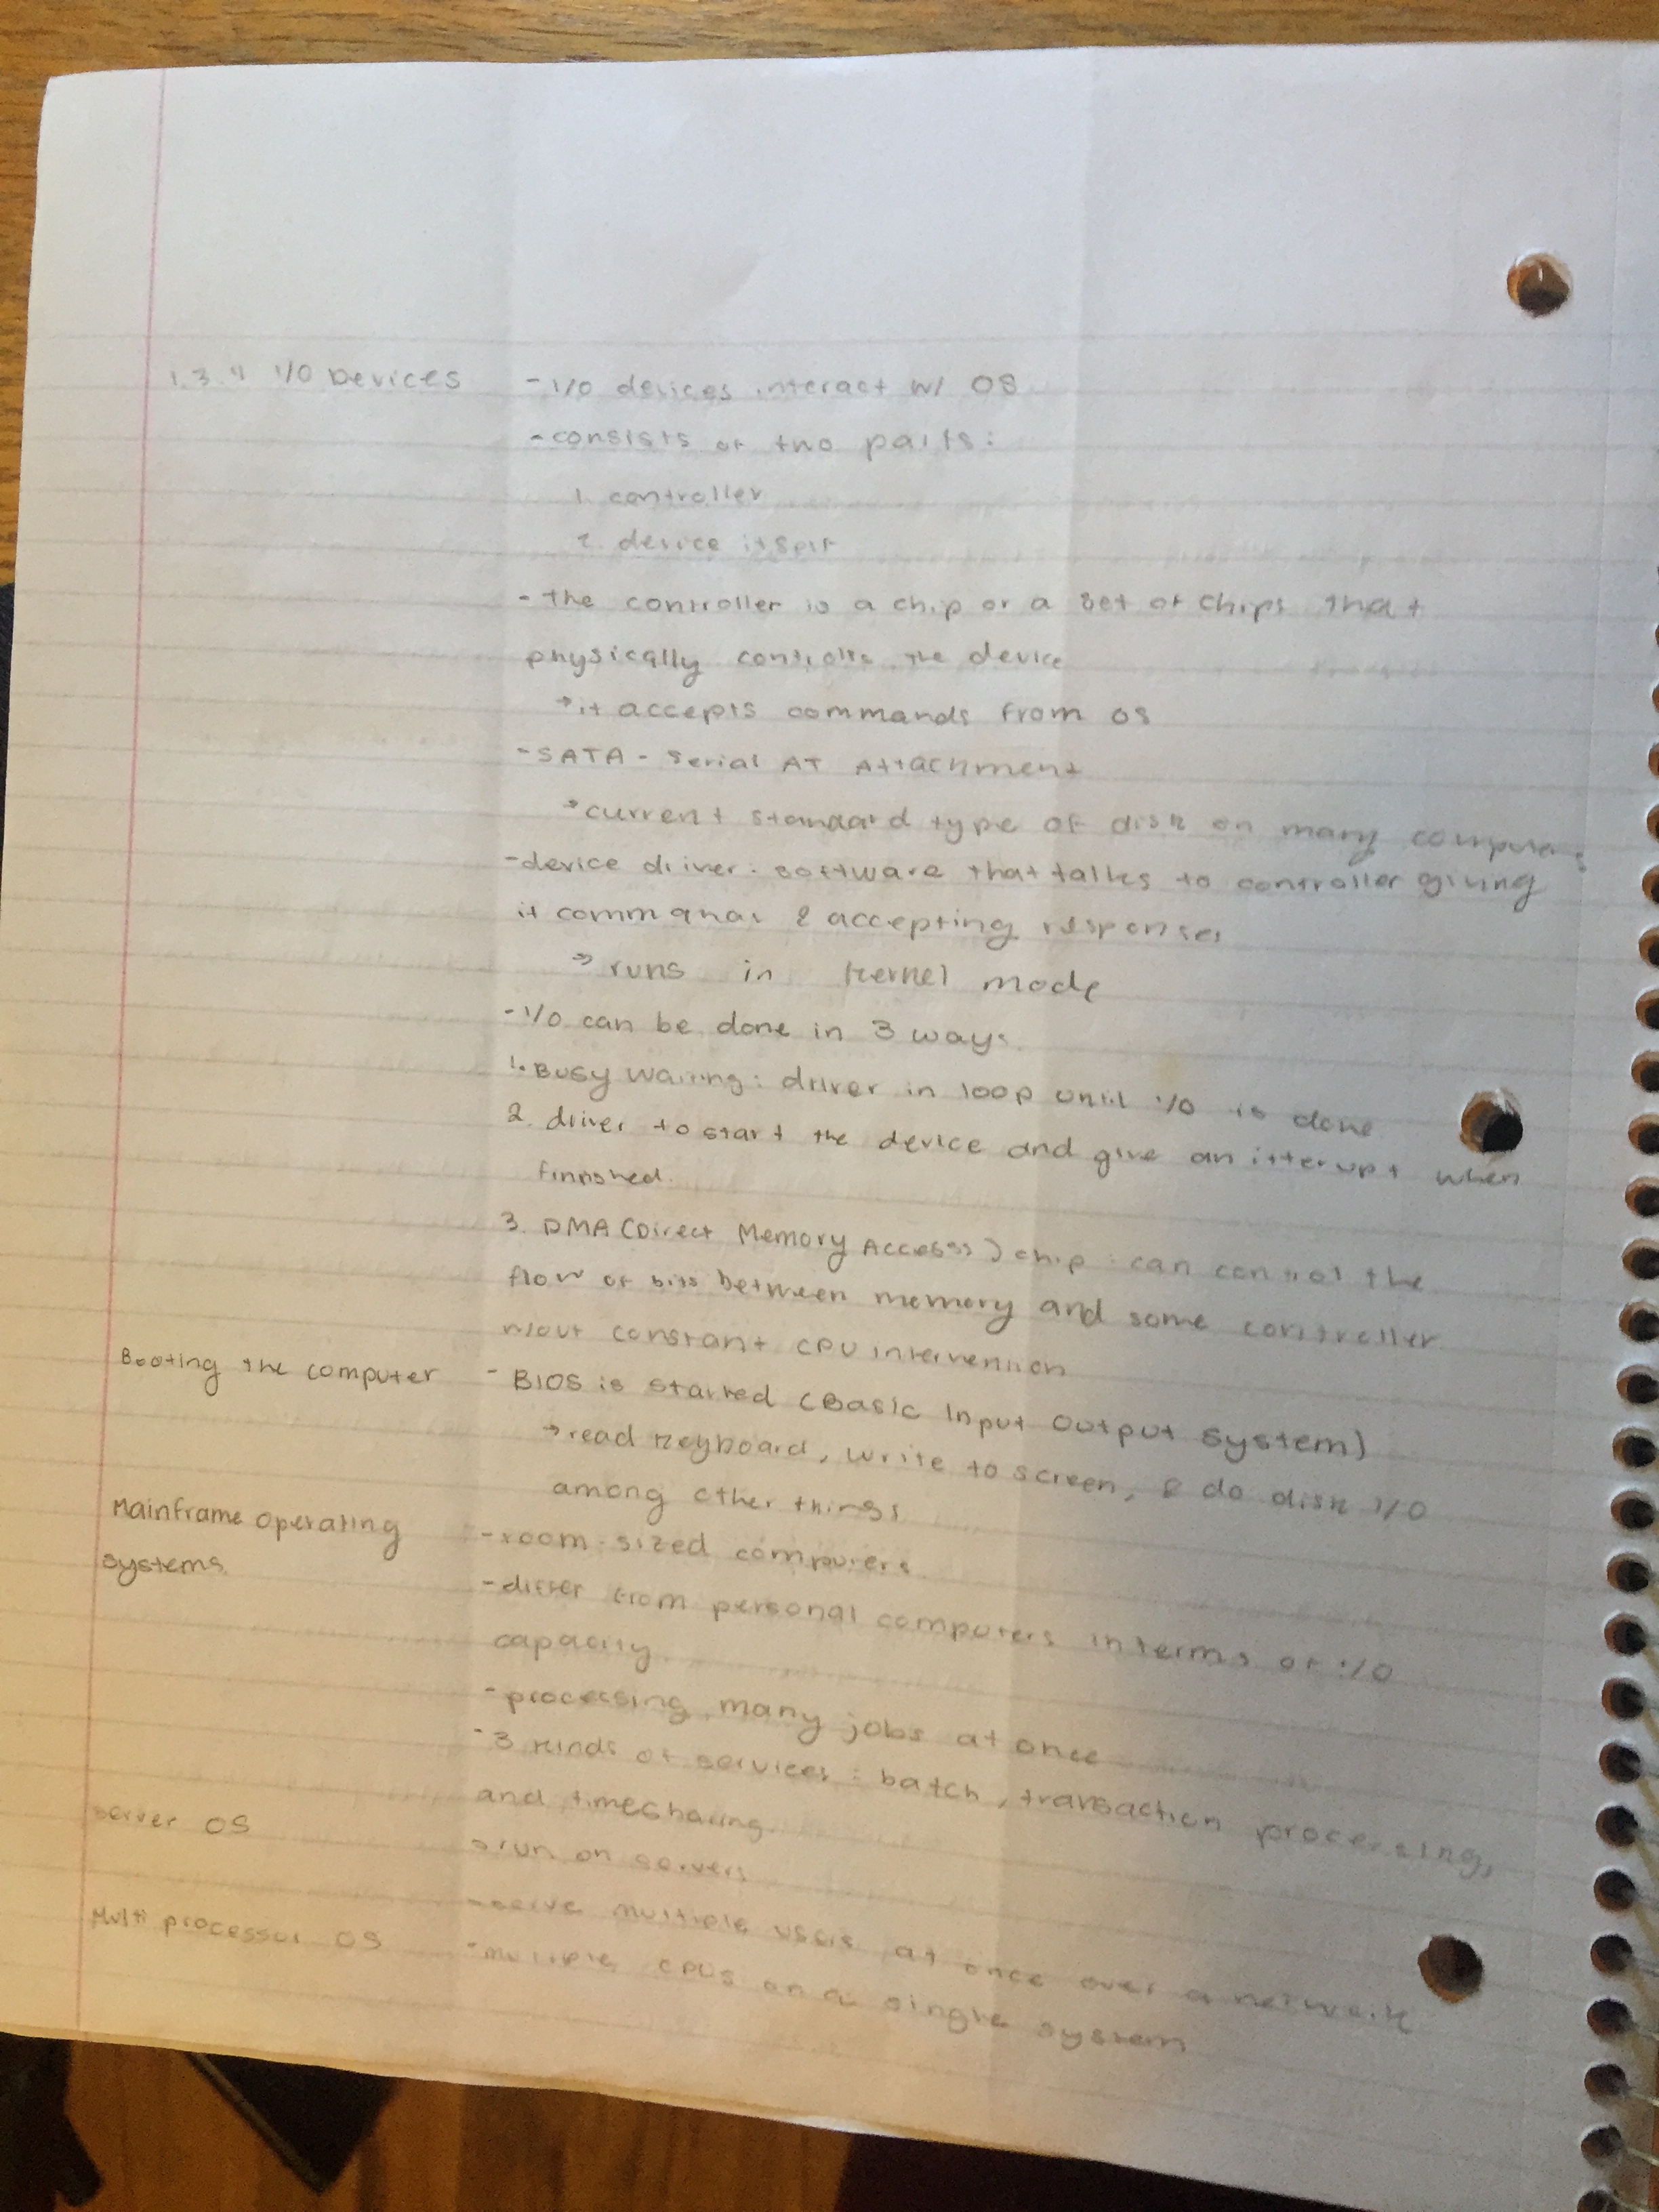 1.3.4 I/O Devices
- I/O devices interact w/ OS
- consists of two parts:
1. controller
2. device itself
- the controller is a chip or a set of chips that
physically controls the device
→ it accepts commands from OS
- SATA - Serial AT Attachment
→ current standard type of disk on many computers
- device driver: software that talks to controller giving
it commands & accepting responses
→ runs in kernel mode
- I/O can be done in 3 ways:
1. Busy Waiting: driver in loop until I/O is done
2. driver to start the device and give an itterupt when
finished.
3. DMA (Direct Memory Access) chip: can control the
flow of bits between memory and some controller
w/out constant CPU intervention
Booting the computer
- BIOS is started (Basic Input Output System)
→ read keyboard, write to screen, & do disk I/O
among other things
Mainframe operating
systems
- room-sized computers
- differ from personal computers in terms of I/O
capacity
- processing many jobs at once
- 3 kinds of services: batch, transaction processing,
and timesharing.
Server OS
→ run on servers
- serve multiple users at once over a network
Multi processor OS
- multiple CPUs on a single system